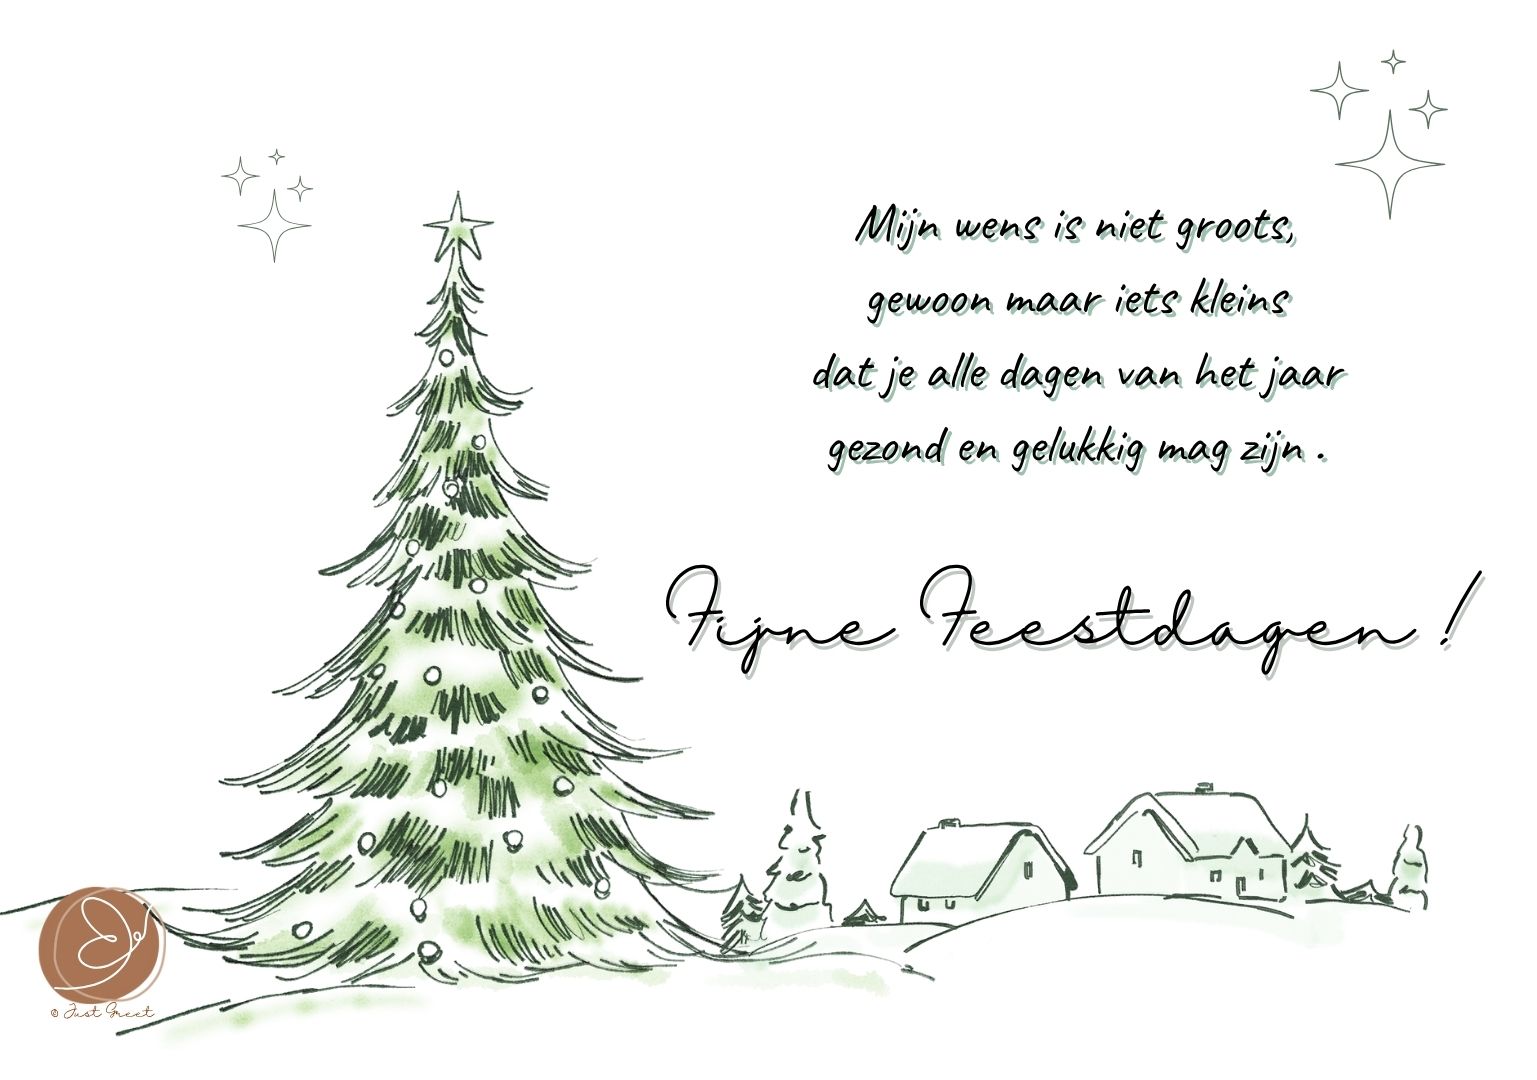 Mijn wens is niet groots,
gewoon maar iets kleins
dat je alle dagen van het jaar
gezond en gelukkig mag zijn .
Fijne Feestdagen !
© Just Greet